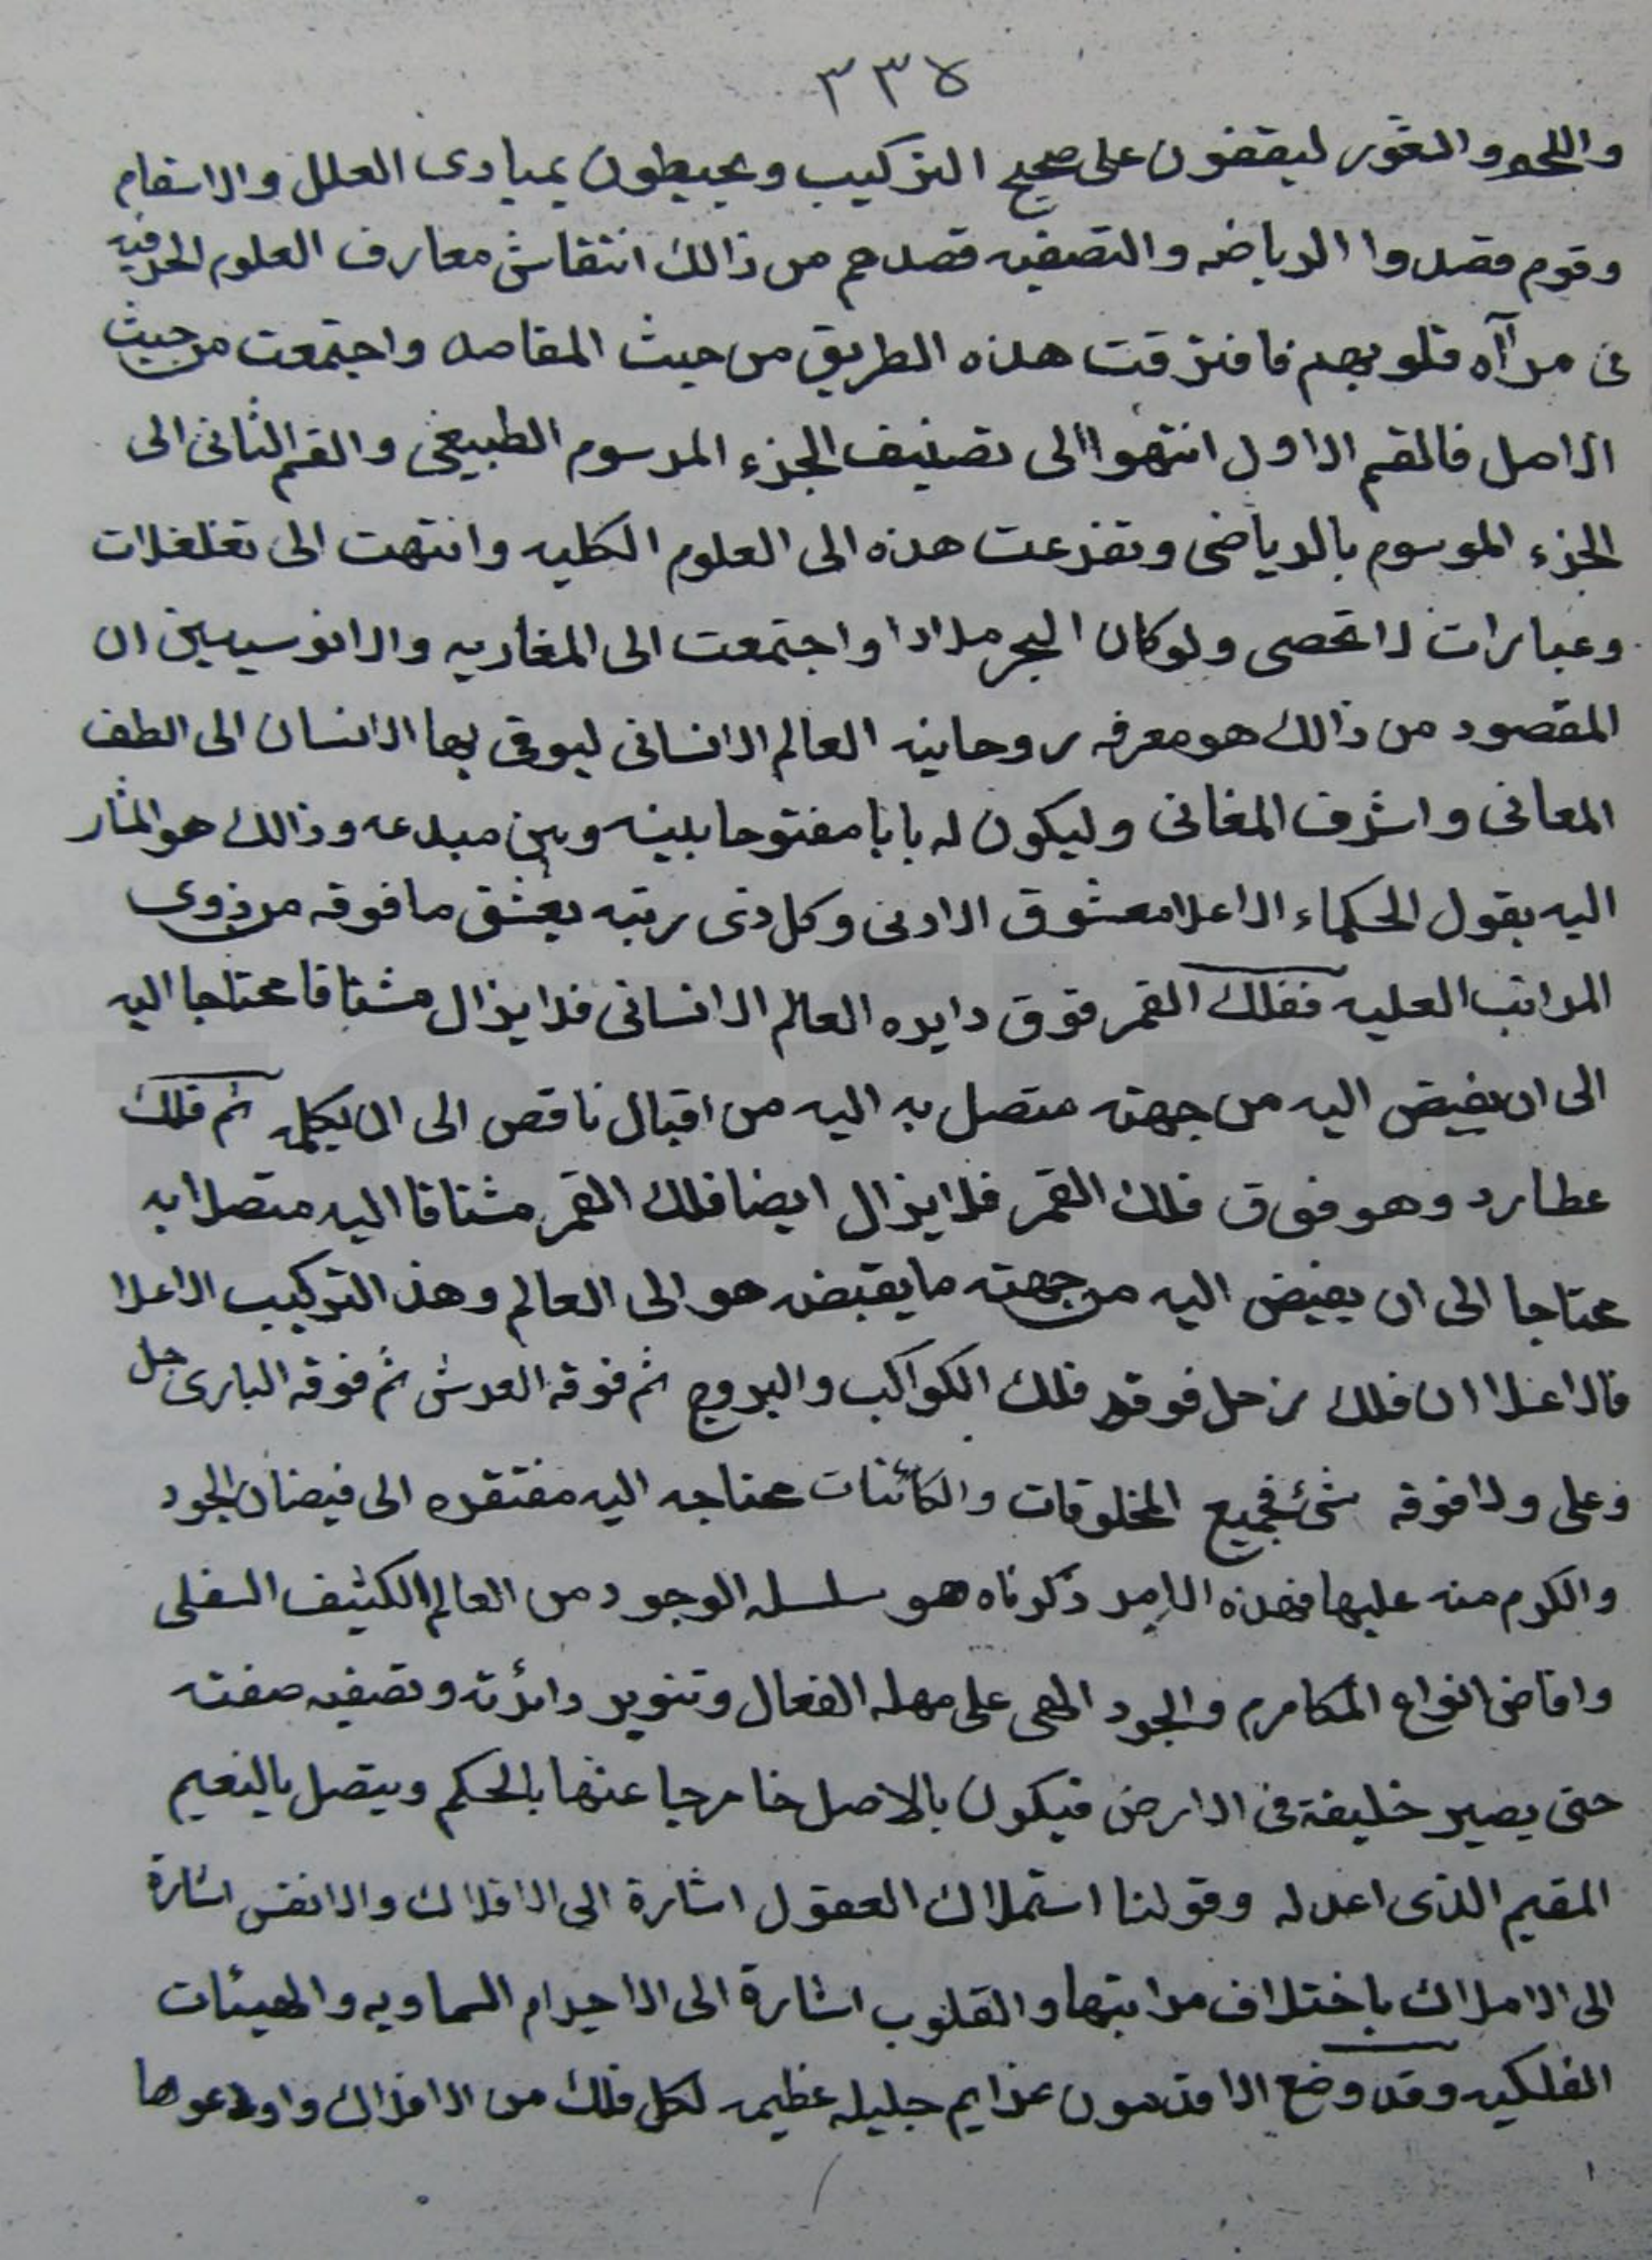 ٣٣٥
واللحو والغور ليقفون على صحيح التركيب ويحيطون بمبادى العلل والاسقام
وقوم قصدوا الرياضه والتصفيه قصدهم من ذالك انتقاش معارف العلوم الحرفيه
فى مرآاه قلوبهم فافترقت هذه الطريق من حيث المقاصد واجتمعت من حيث
الاصل فالقسم الاول انتهوا الى تصنيف الجزء المرسوم الطبيعى والقسم الثانى الى
الجزء الموسوم بالرياضى وتفرعت هذه الى العلوم الكليه وانتهت الى تغلغلات
وعبارات لا تحصى ولو كان البحر مدادا واجتمعت الى المغاربه والانوسيين ان
المقصود من ذالك هو معرفه روحانيه العالم الانسانى ليوقى بها الانسان الى الطف
المعانى واشرف المغانى وليكون له بابا مفتوحا بينه وبين مبدعه وذالك هو المثار
اليه بقول الحكماء الاعلا معشوق الادنى وكل ذى رتبه يعشق ما فوقه من ذوى
المراتب العليه ففلك القمر فوق دايره العالم الانسانى فلا يزال مشتاقا محتاجا اليه
الى ان يفيض اليه من جهته متصل به اليه من اقبال ناقص الى ان يكمله ثم فلك
عطارد وهو فوق فلك القمر فلا يزال ايضا فلك القمر مشتاقا اليه متصلا به
محتاجا الى ان يفيض اليه من جهته ما يقبضه هو الى العالم وهذ التركيب الاعلا
فالاعلا ان فلك زحل فوقه فلك الكواكب والبروج ثم فوقه العرش ثم فوقه البارى جل
وعلى ولا فوقه شئ فجميع المخلوقات والكائنات محتاجه اليه مفتقره الى فيضان الجود
والكرم منه عليها فهذه الامر ذكرناه هو سلسله الوجود من العالم الكثيف السفلى
وافاض انواع المكارم والجود الهى على مهله الفعال وتنوير دائرته وتصفيه صفته
حتى يصير خليفة فى الارض فيكون بالاصل خارجا عنها بالحكم ويتصل بالنعيم
المقيم الذى اعد له وقولنا استملاك العقول اشارة الى الافلاك والانفس اشارة
الى الاملاك باختلاف مراتبها والقلوب اشارة الى الاجرام السماويه والهيئات
الفلكيه وقد وضع الاقدمون عزايم جليله عظيمه لكل فلك من الافلاك واودعوها